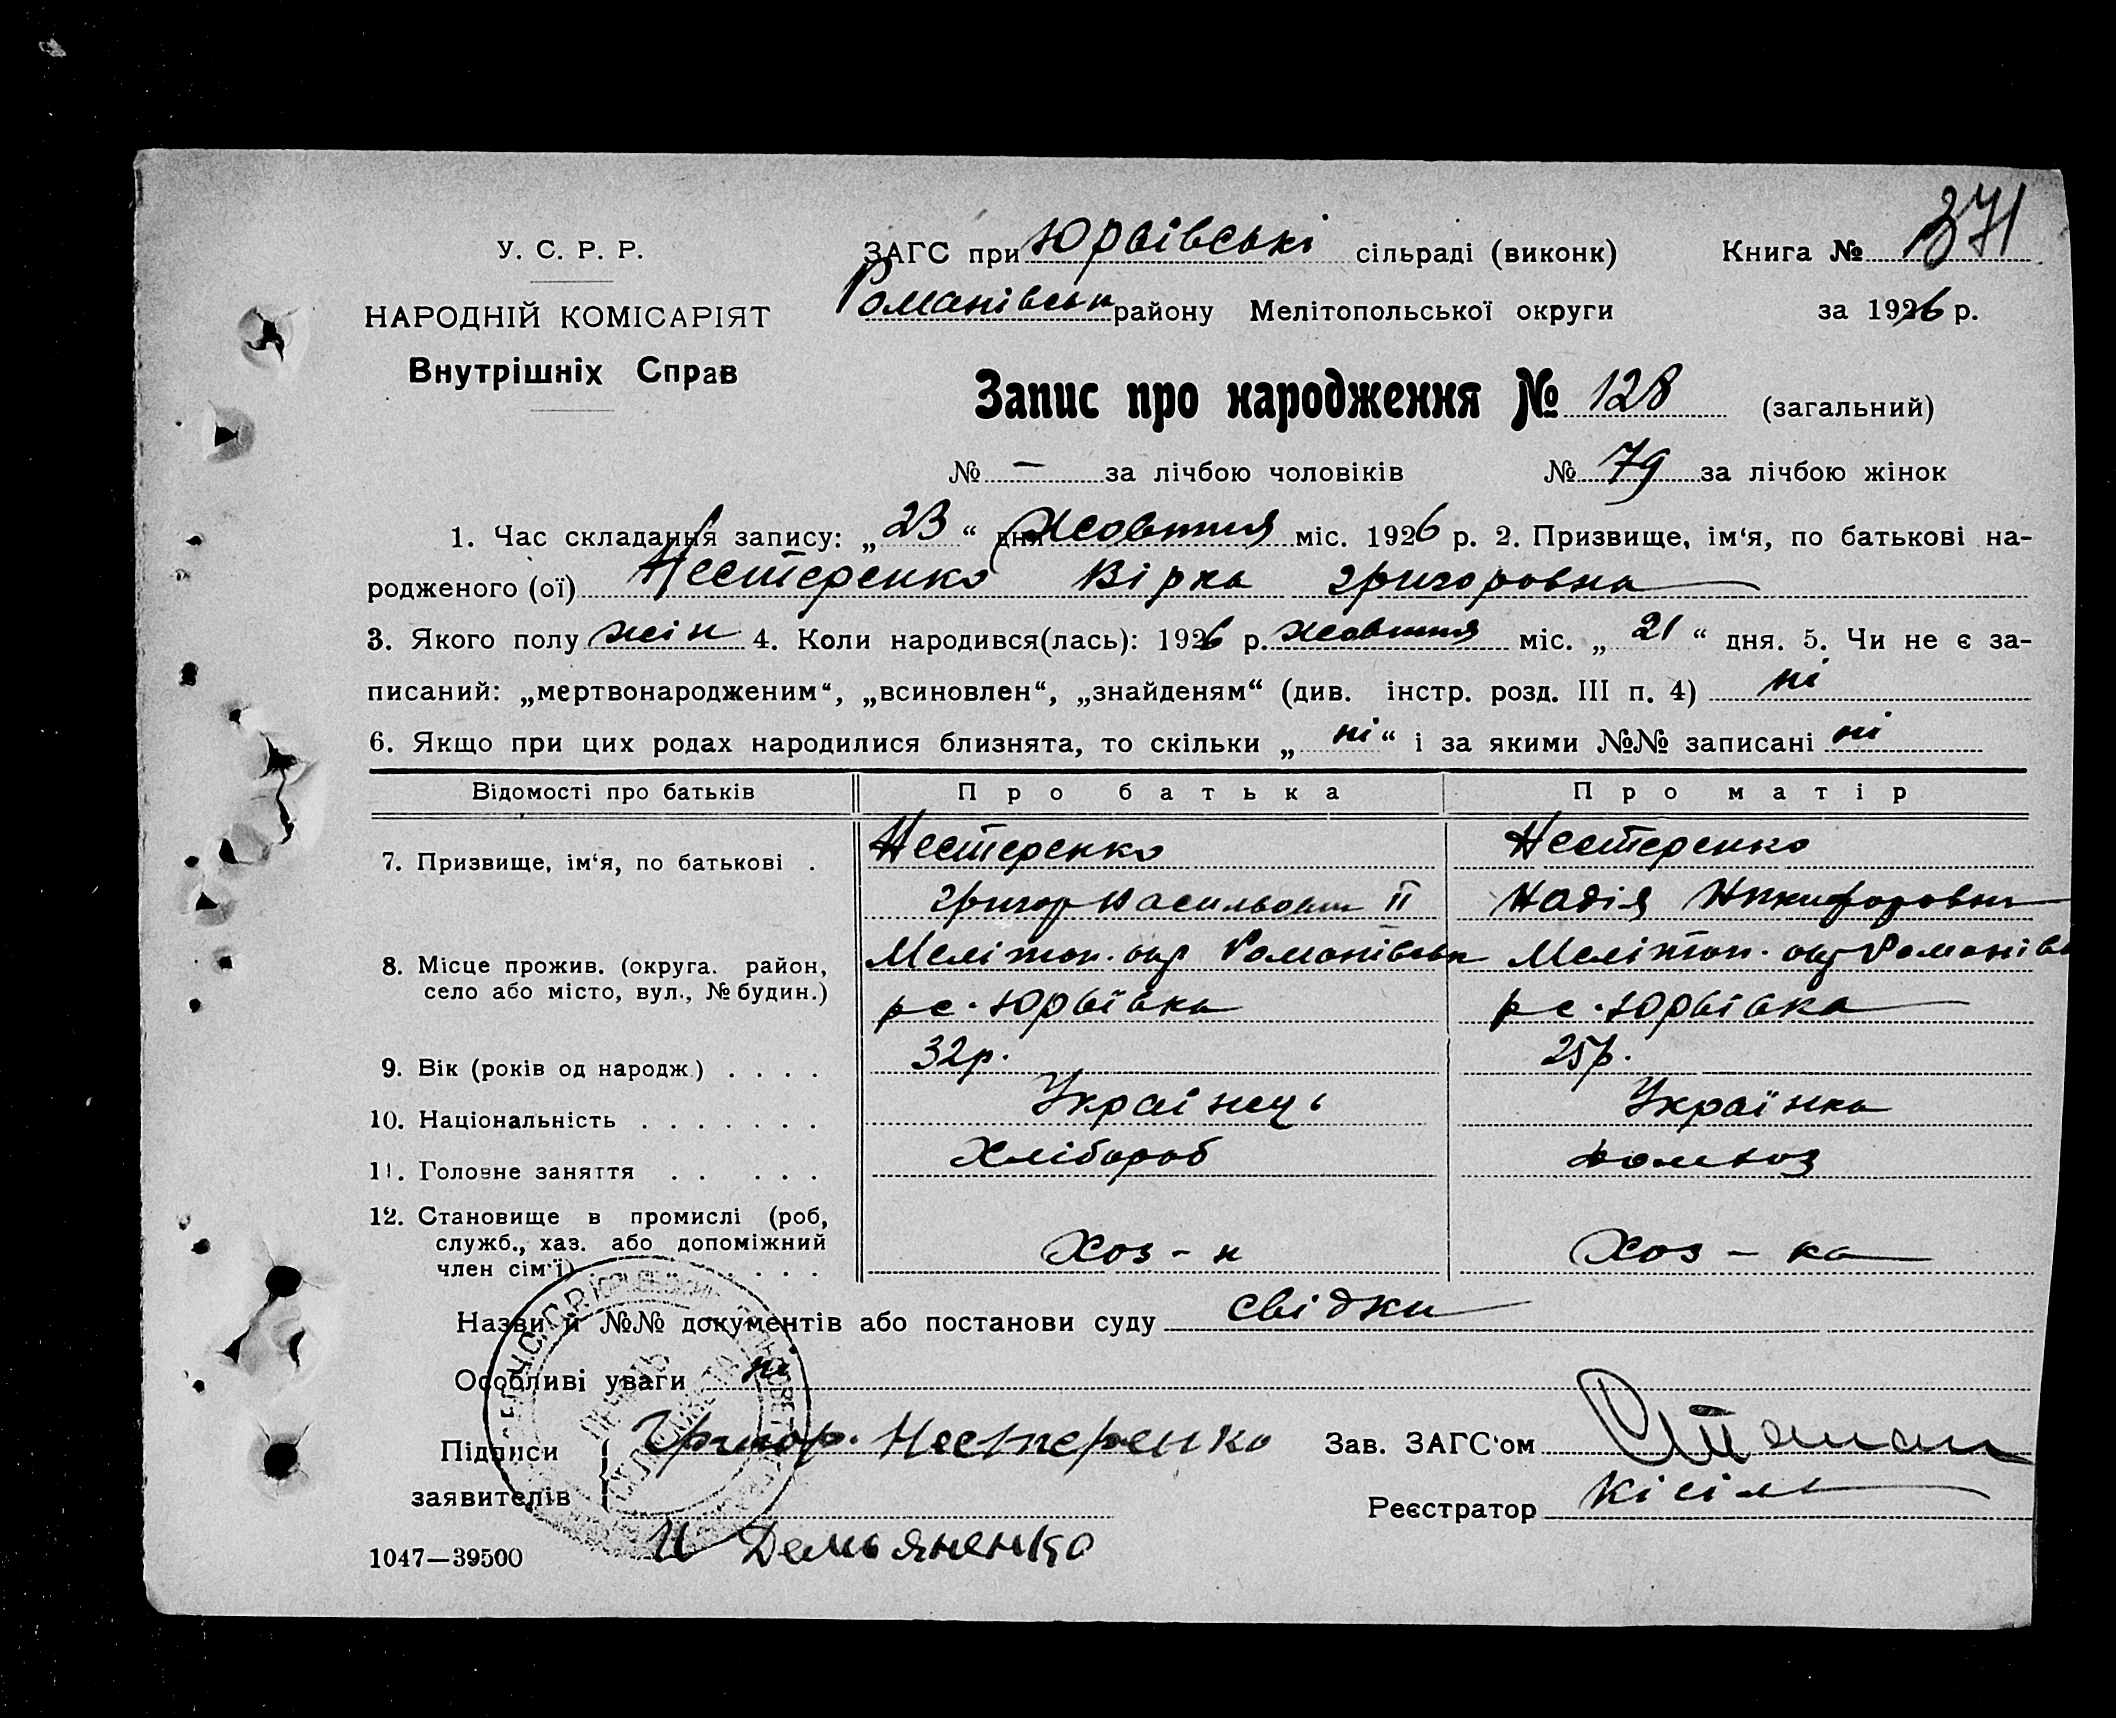 У. С. Р. Р.
НАРОДНІЙ КОМІСАРІЯТ
Внутрішніх Справ
ЗАГС при Юрьївські сільраді (виконк) Книга № 371
Романівськ району Мелітопольської округи за 1926 р.
Запис про народження № 128 (загальний)
№ — за лічбою чоловіків № 79 за лічбою жінок
1. Час складання запису: „23“ дня Жовтня міс. 1926 р. 2. Призвище, ім‘я, по батькові на-
родженого (ої) Нестеренко Вірка Григоровна
3. Якого полу жін 4. Коли народився(лась): 1926 р. жовтня міс. „21“ дня. 5. Чи не є за-
писаний: „мертвонародженим“, „всиновлен“, „знайденям“ (див. інстр. розд. III п. 4) ні
6. Якщо при цих родах народилися близнята, то скільки „ні“ і за якими №№ записані ні
Відомості про батьків Про батька Про матір
7. Призвище, ім‘я, по батькові . Нестеренко Нестеренко
Григор Васильович II Надія Никифоровна
8. Місце прожив. (округа. район, Меліпоп. окр Романівськ Меліпоп. окр Романівс
село або місто, вул., № будин.) р с. Юрьївка р с. Юрьївка
9. Вік (років од народж.) . . . . 32р. 25р.
10. Національність . . . . . . . Украінець Українка
11. Головне заняття . . . . . Хлібороб домхоз
12. Становище в промислі (роб,
служб., хаз. або допоміжний Хоз-н Хоз-ка
член сім‘ї) . . . .
Назви й №№ документів або постанови суду свідки
Особливі уваги ні
Підписи Григор. Нестеренко Зав. ЗАГС‘ом
заявителів Реєстратор Кісіль
И Демьяненко
1047—39500